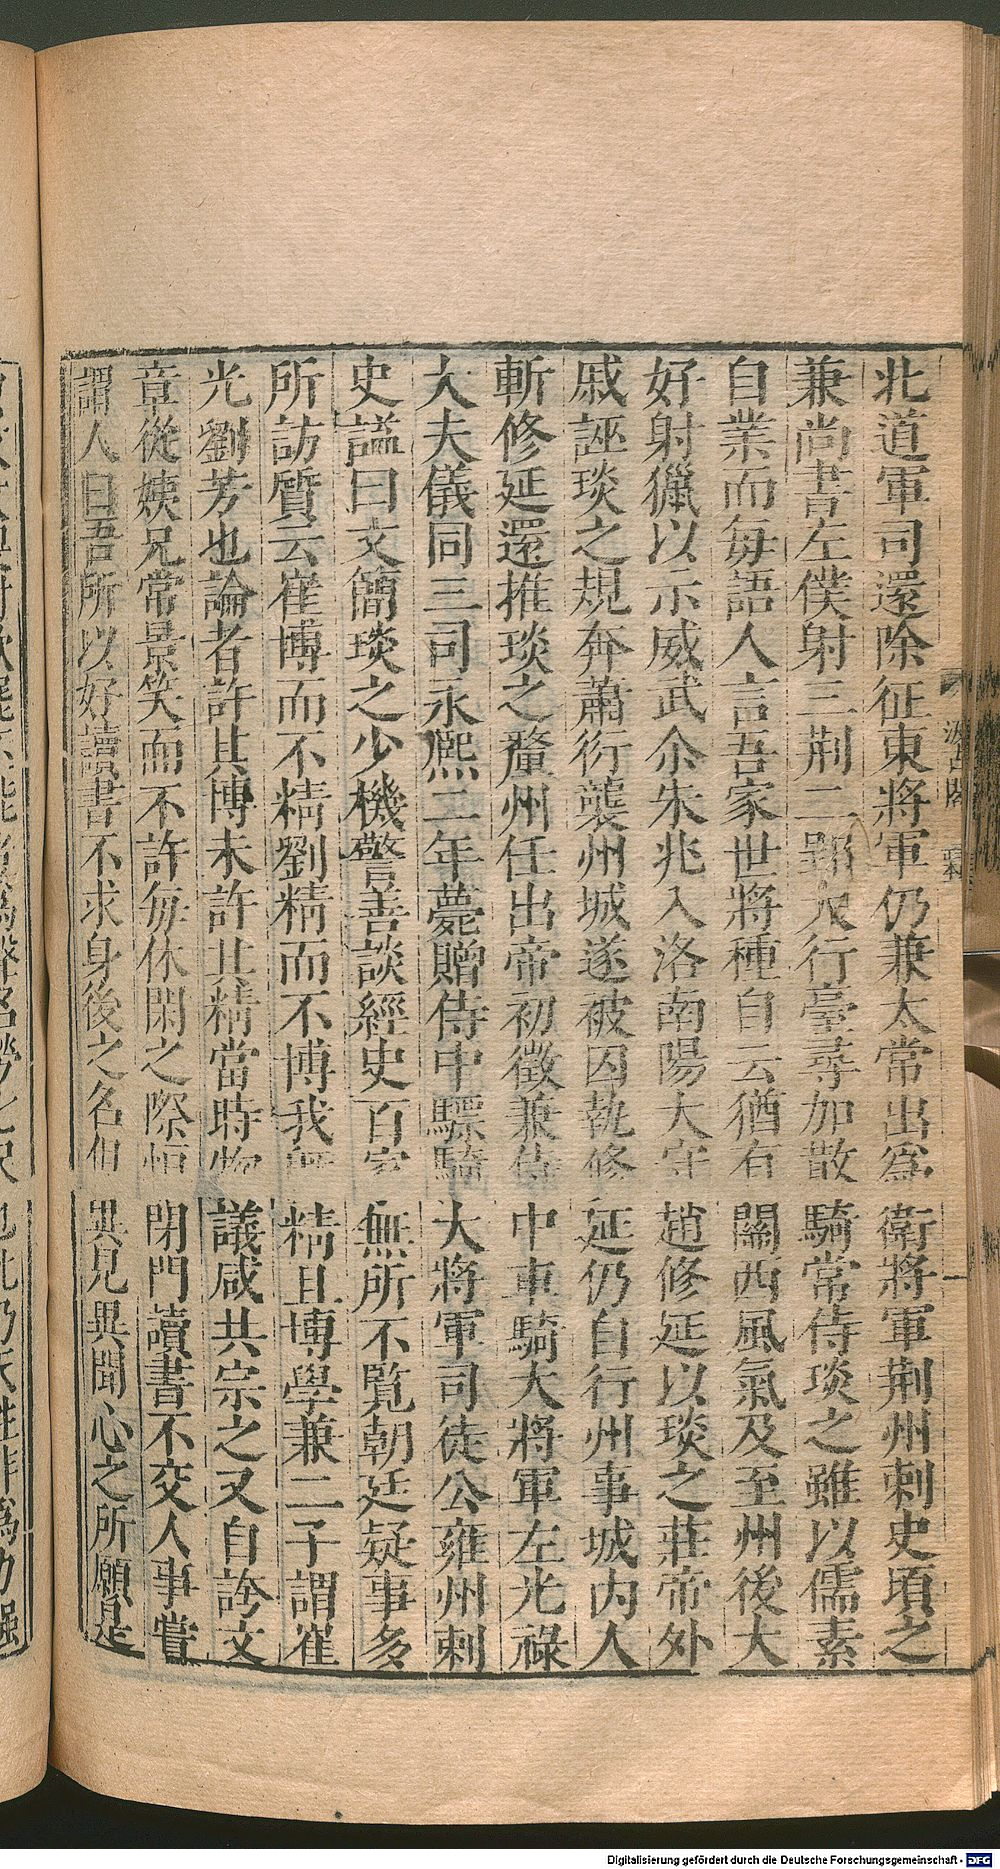 北道軍司還除征東將軍仍兼太常出爲衛將軍荆州刺史頃之
兼尚書左僕射三荆二郢大行臺尋加散騎常侍琰之雖以儒素
自業而每語人言吾家世將種自云猶有關西風氣及至州後大
好射獵以示威武尒朱兆入洛南陽太守趙修延以琰之莊帝外
戚誣琰之規奔蕭衍襲州城遂被囚執修延仍自行州事城内人
斬修延還推琰之釐州任出帝初徵兼侍中車騎大將軍左光祿
大夫儀同三司永熙二年薨贈侍中驃騎大將軍司徒公雍州刺
史謚曰文簡琰之少機警善談經史百家無所不覧朝廷疑事多
所訪質云崔博而不精劉精而不博我既精且博學兼二子謂崔
光劉芳也論者許其博未許其精當時物議咸共宗之又自誇文
章從姨兄常景笑而不許每休閑之際恒閉門讀書不交人事嘗
謂人曰吾所以好讀書不求身後之名但異見異聞心之所願是
汲古閣
Digitalisierung gefördert durch die Deutsche Forschungsgemeinschaft - DFG